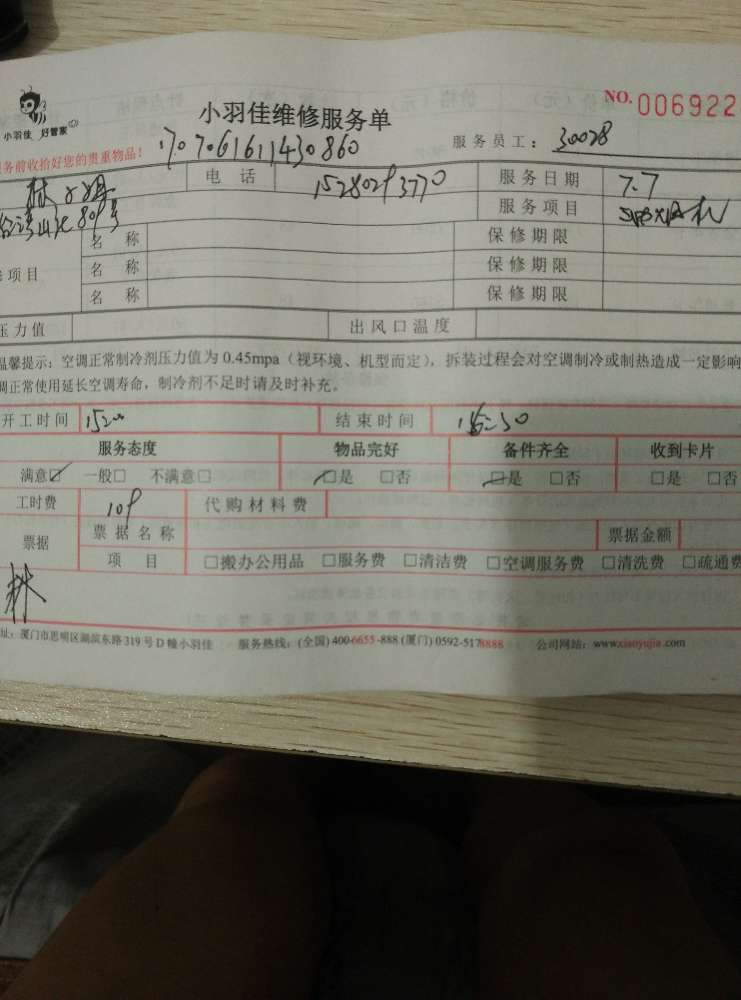 NO. 006922
小羽佳 好管家
小羽佳维修服务单
170706161143 0860
服务员工： 30028
务前收拾好您的贵重物品！
林
电话 15280293770 服务日期 7.7
809号 服务项目
名称 保修期限
项目 名称 保修期限
名称 保修期限
压力值 出风口温度
温馨提示：空调正常制冷剂压力值为 0.45mpa（视环境、机型而定），拆装过程会对空调制冷或制热造成一定影响
调正常使用延长空调寿命，制冷剂不足时请及时补充。
开工时间 1520 结束时间
服务态度 物品完好 备件齐全 收到卡片
满意☑ 一般□ 不满意□ ☑是 □否 ☑是 □否 □是 □否
工时费 109 代购材料费
票据 票据名称 票据金额
项目 □搬办公用品 □服务费 □清洁费 □空调服务费 □清洗费 □疏通费
林
址：厦门市思明区湖滨东路 319 号 D 幢小羽佳 服务热线：(全国) 400-6655-888 (厦门) 0592-5178888 公司网站：www.xiaoyujia.com